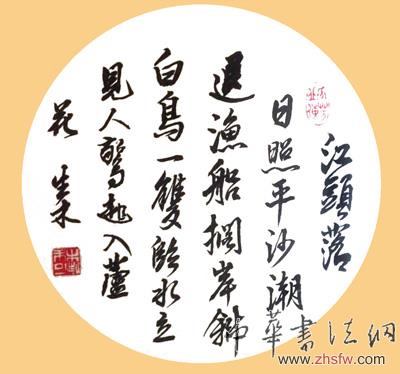 江頭落
日照平沙潮
退漁船擱岸斜
白鳥一雙臨水立
見人驚起入蘆
花
華書法網
www.zhsfw.com